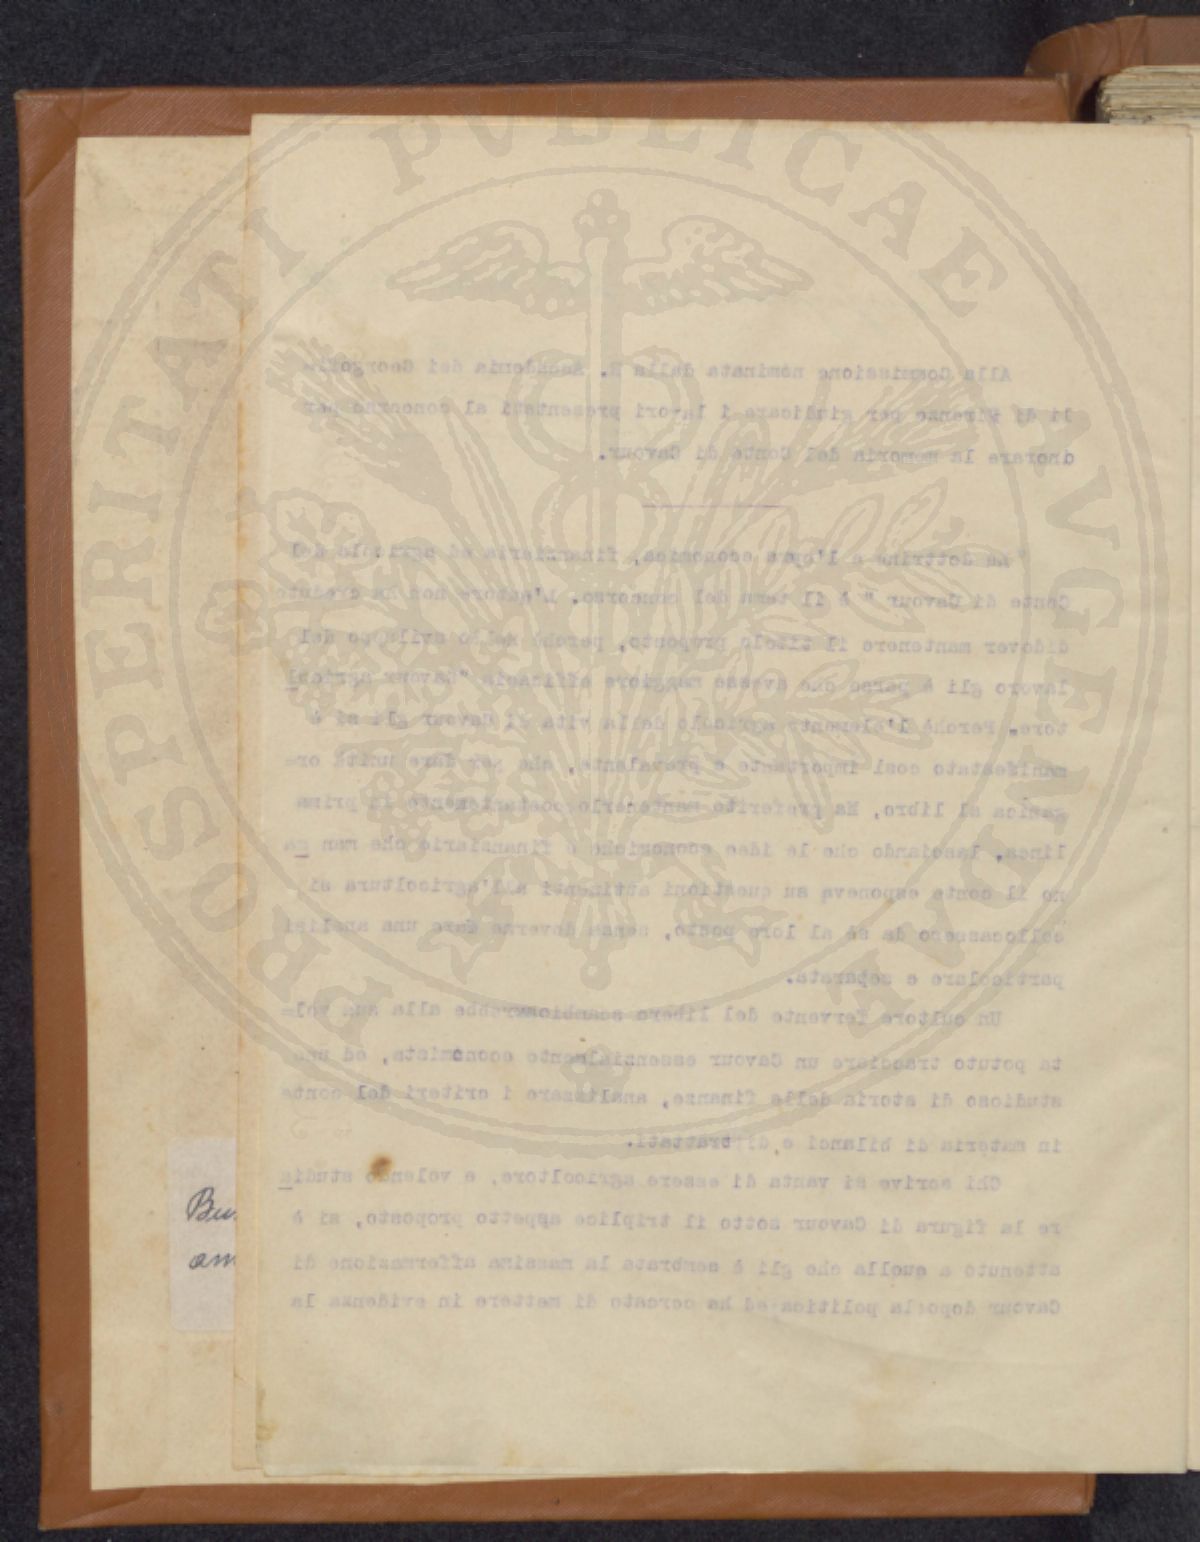 PROSPERITATI PUBLICAE AVGENDAE
Alla Commissione nominata dalla R. Accademia dei Georgofi=
li di Firenze per giudicare i lavori presentati al concorso per
onorare la memoria del Conte di Cavour.
"Le dottrine e l'opera economica, finanziaria ed agricola del
Conte di Cavour" è il tema del concorso. L'autore non ha creduto
didover mantenere il titolo proposto, perchè nello sviluppo del
lavoro gli è parso che avesse maggiore efficacia "Cavour agricol
tore. Perchè l'elemento agricolo della vita di Cavour gli si è
manifestato così importante e prevalente, che per dare unità or=
ganica al libro, ha preferito mantenerlo costantemente in prima
linea, lasciando che le idee economiche e finanziarie che man ma
no il conte esponeva su questioni attinenti all'agricoltura si
collocassero da sè al loro posto, senza doverne fare una analisi
particolare e separata.
Un cultore fervente del libero scambio avrebbe alla sua vol=
ta potuto tracciare un Cavour essenzialmente economista, ed uno
studioso di storia delle finanze, analizzare i criteri del conte
in materia di bilanci e di trattati.
Chi scrive si vanta di essere agricoltore, e volendo studia
re la figura di Cavour sotto il triplice aspetto proposto, si è
attenuto a quella che gli è sembrata la massima affermazione di
Cavour dopo la politica, ed ha cercato di mettere in evidenza la